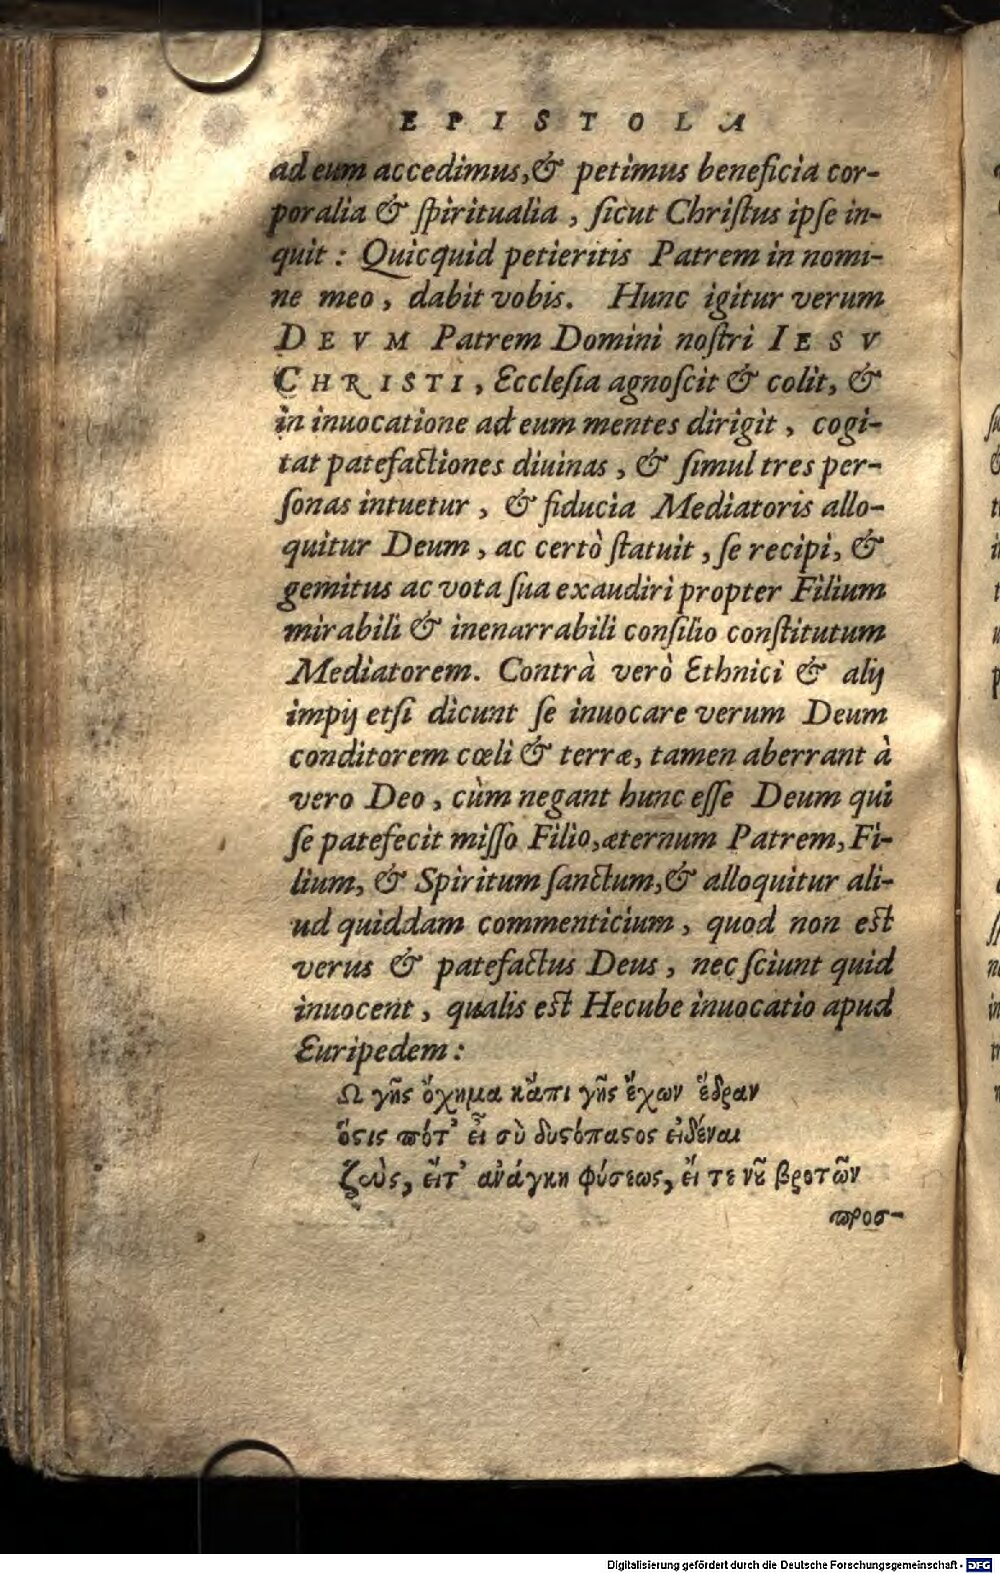 EPISTOLA
ad eum accedimus, & petimus beneficia cor-
poralia & ſpiritualia, ſicut Chriſtus ipſe in-
quit: Quicquid petieritis Patrem in nomi-
ne meo, dabit vobis. Hunc igitur verum
DEVM Patrem Domini noſtri IESV
CHRISTI, Eccleſia agnoſcit & colit, &
in inuocatione ad eum mentes dirigit, cogi-
tat patefactiones diuinas, & ſimul tres per-
ſonas intuetur, & fiducia Mediatoris allo-
quitur Deum, ac certò ſtatuit, ſe recipi, &
gemitus ac vota ſua exaudiri propter Filium
mirabili & inenarrabili conſilio conſtitutum
Mediatorem. Contrà verò Ethnici & alij
impij etſi dicunt ſe inuocare verum Deum
conditorem cœli & terræ, tamen aberrant à
vero Deo, cùm negant hunc eſſe Deum qui
ſe patefecit miſſo Filio, æternum Patrem, Fi-
lium, & Spiritum ſanctum, & alloquitur ali-
ud quiddam commenticium, quod non est
verus & patefactus Deus, nec ſciunt quid
inuocent, qualis est Hecube inuocatio apud
Euripedem:
Ω γῆς ὄχημα κἄπι γῆς ἔχων ἕδραν
ὅςις πότ' εἶ σὺ δυςόπαςος εἰδέναι
ζεὺς, εἴτ' ἀνάγκη φύσεως, εἴ τε νοῦ βροτῶν
προσ-
Digitalisierung gefördert durch die Deutsche Forschungsgemeinschaft - DFG